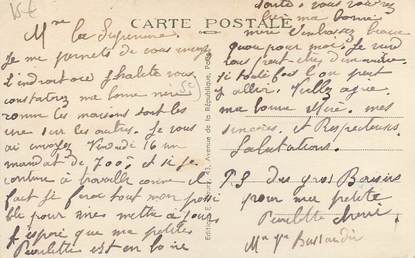 15 €
CARTE POSTALE
Mme la Superieure
Je me permets de vous envoyer
l'indroit ou j'habite vous
constatrez ma bonne mère
comme les maisons sont les
une sur les autres. Je vous
ai envoyez Vendredi 16 un
mandat de 700f et si je
continu à travaillé comme il
faut je ferai tout mon possi
ble pour mes mettre a jours
J'espoir que ma petites
Paulette est en boire
santé. vous voudrez
bien ma bonne
mère l'embasser beaucoup
pour moi. Je viendrai
peut etre dimanche
si toute fois l'on peut
y aller. Veillez agrée
ma bonne Mère. mes
sincères et Respectueux
Salutations.
P.S des gros Baisers
pour ma petite
Paulette cherie
Editions E.
Avenue de la République,